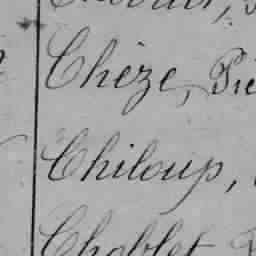 Chèze, Pie
Chiloup,
Choblet